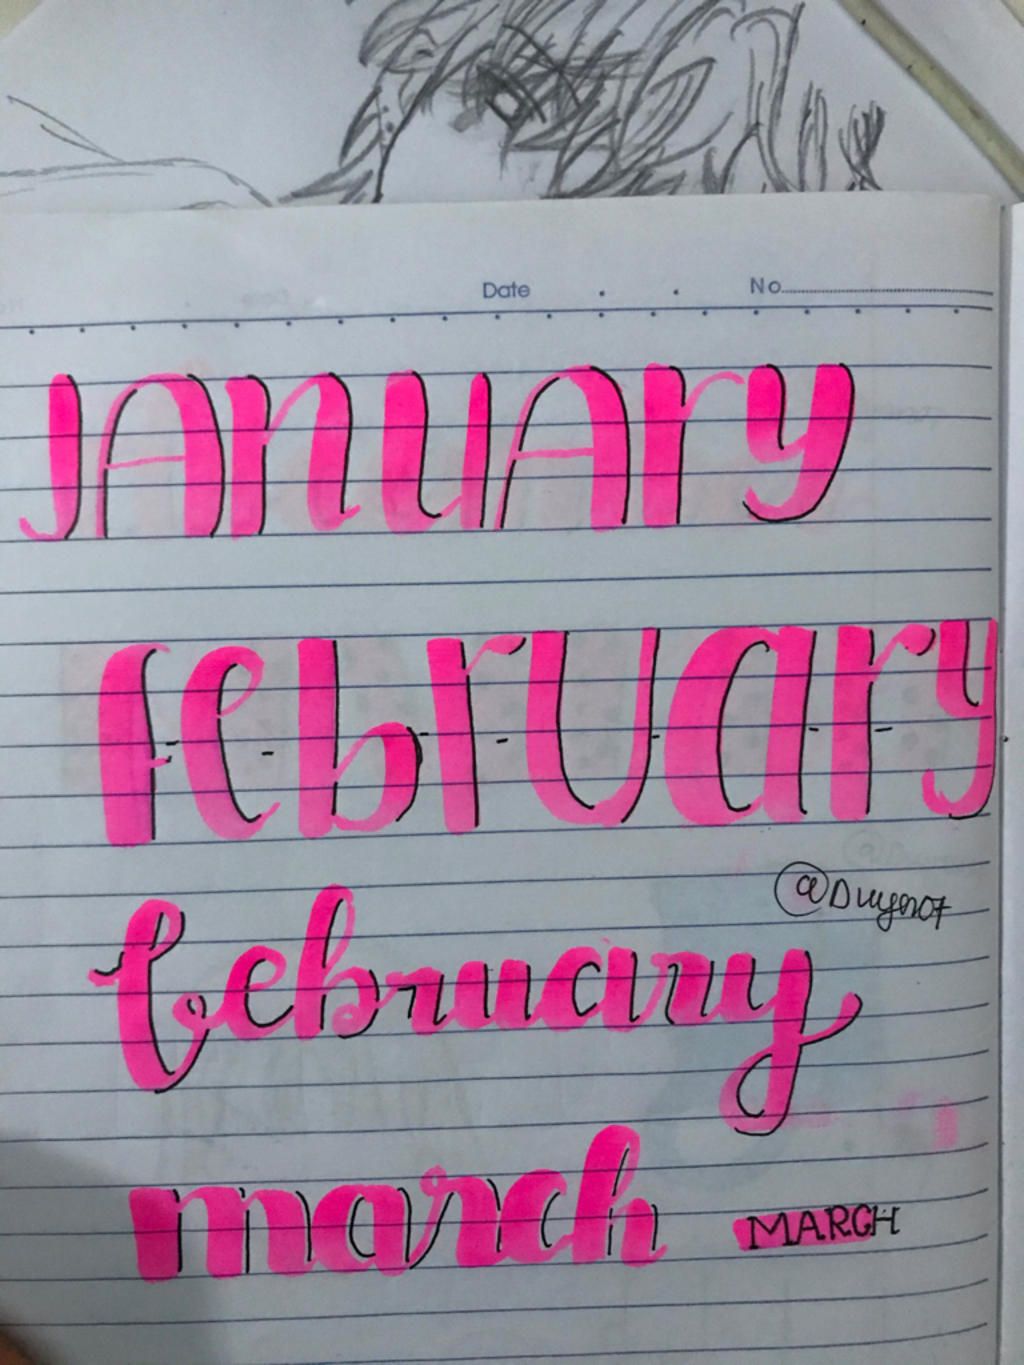 Date . . No
JANUARY
February
@Duyen07
february
march MARCH